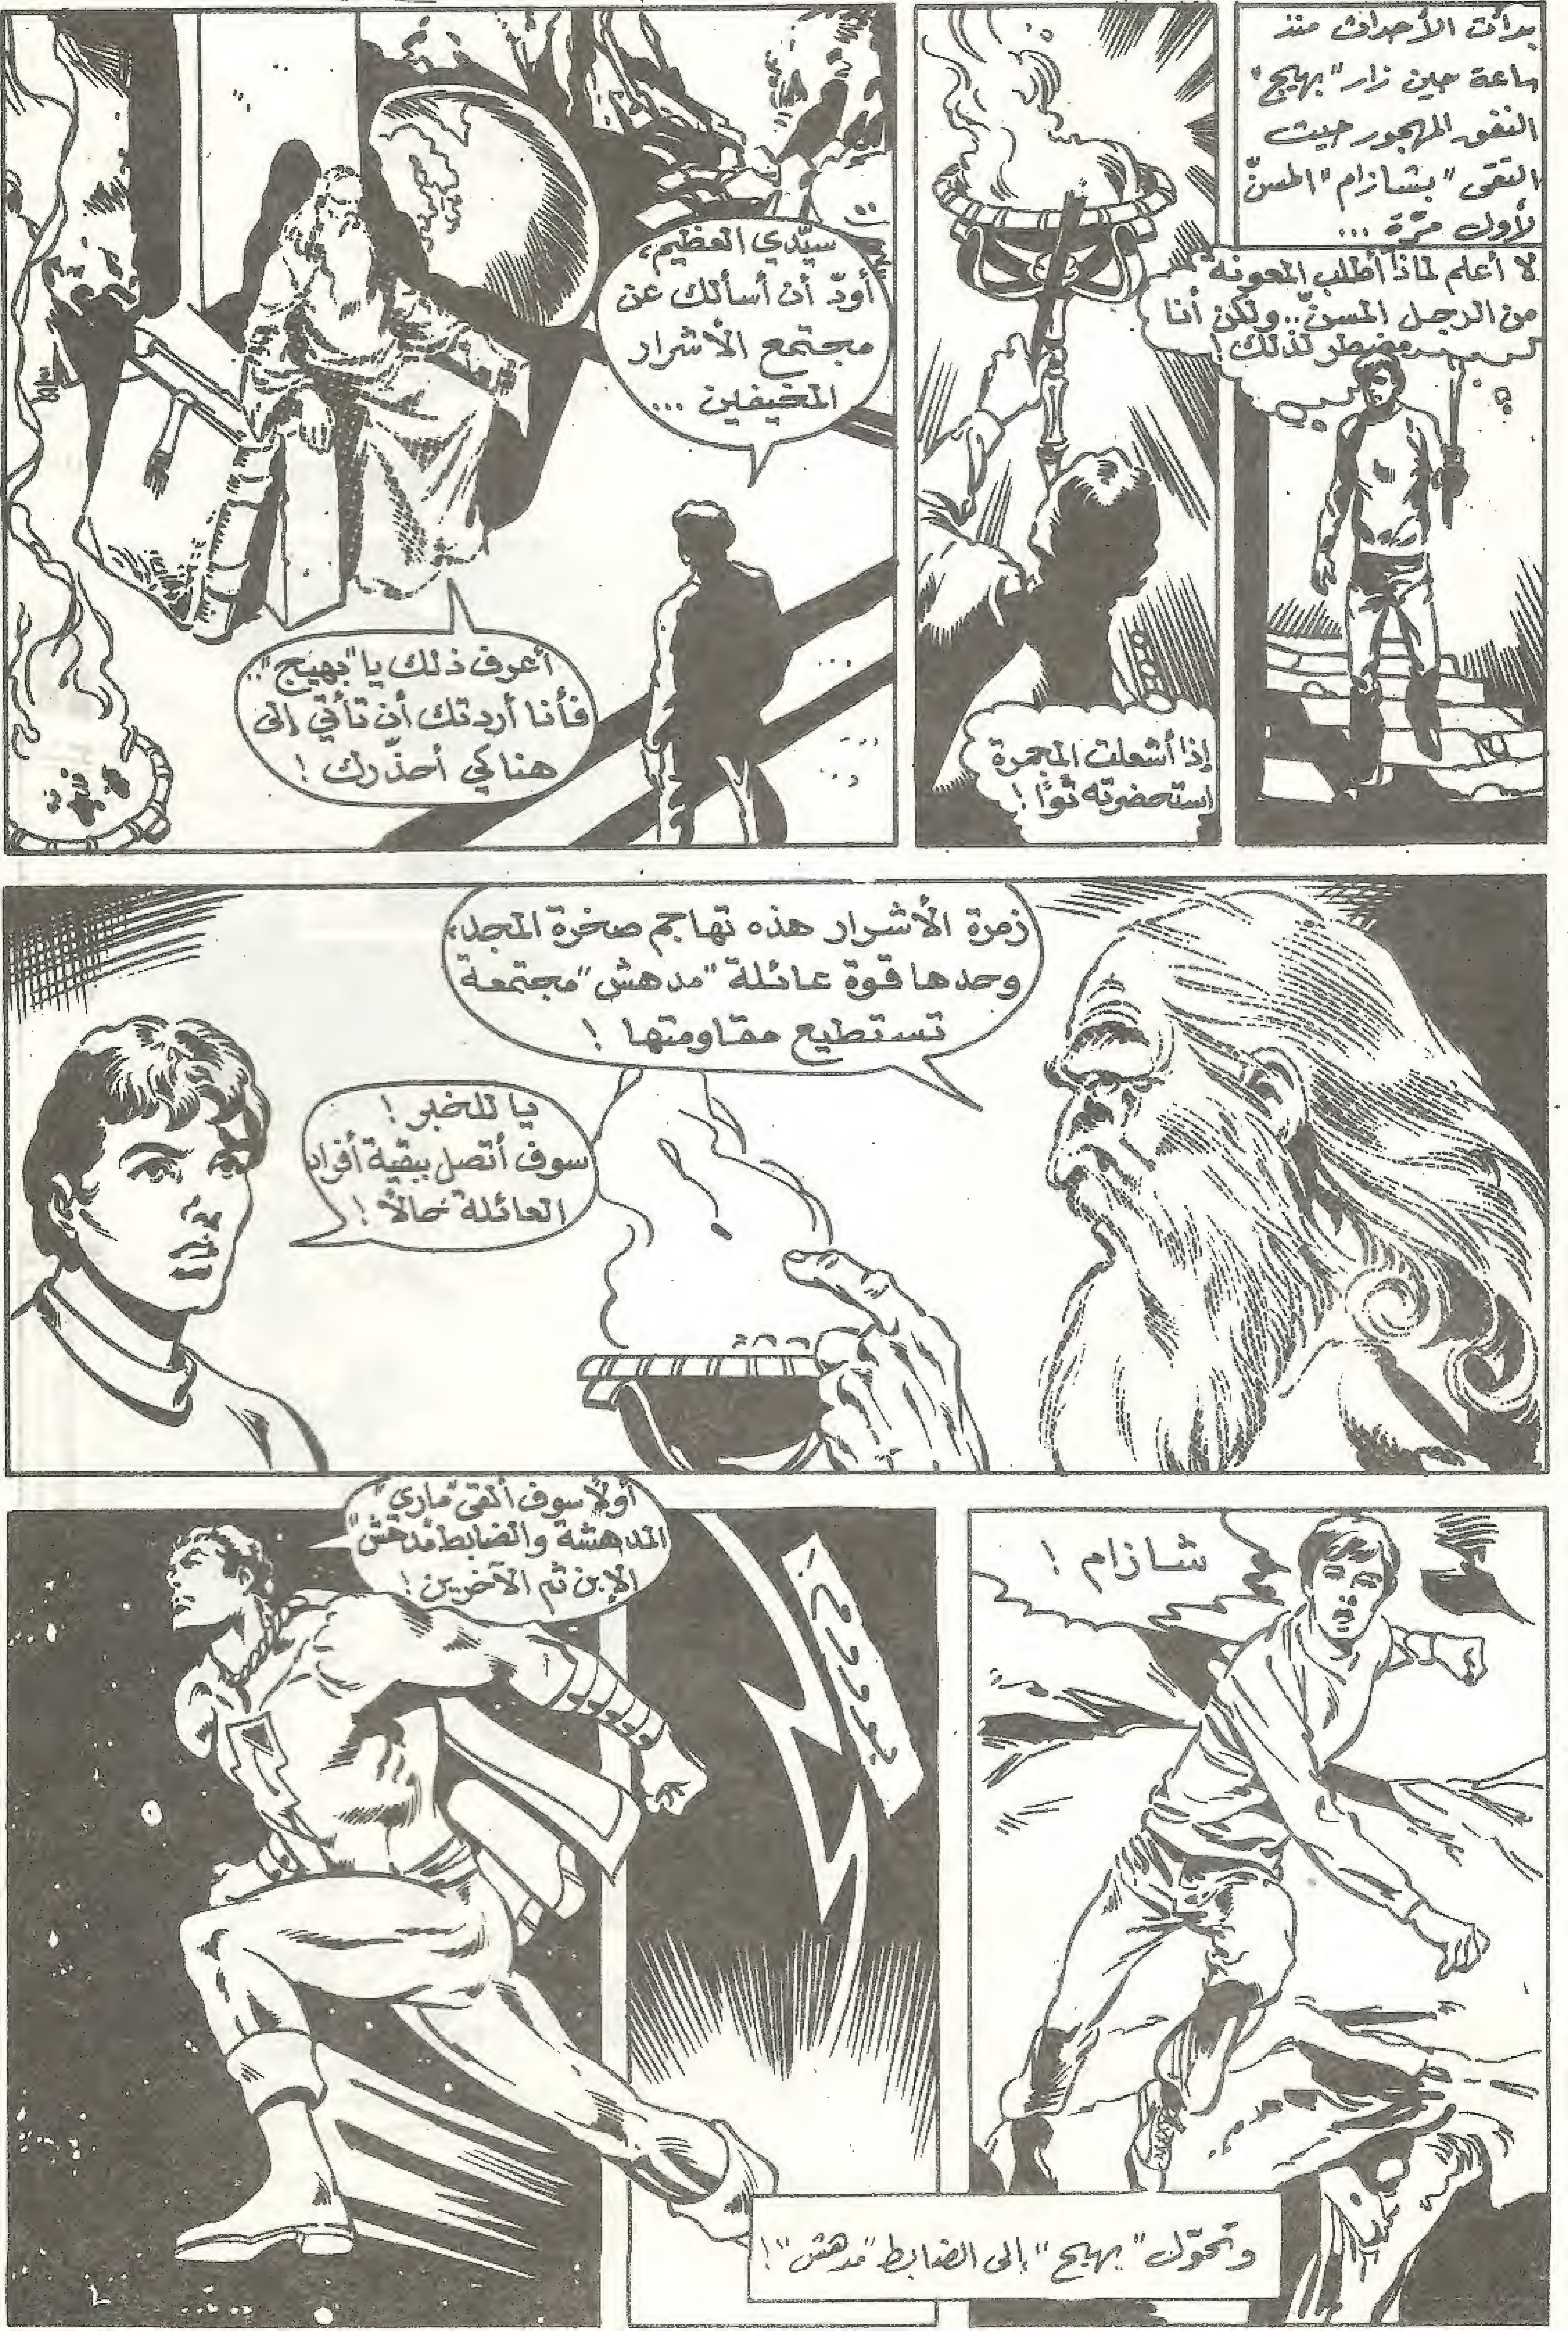 بدأت الأحداث منذ
ساعة حين زار "بهيج"
النفق المهجور حيث
التقى "بشازام" المسنّ
لأول مرّة ...
لا أعلم لماذا أطلب المعونة
من الرجل المسنّ.. ولكن أنا
مضطر لذلك!
إذا أشعلت المجمرة
استحضرته توًّا!
سيّدي العظيم،
أودّ أن أسألك عن
مجتمع الأشرار
المخيفين ...
أعرف ذلك يا "بهيج"..
فأنا أردتك أن تأتي إلى
هنا كي أحذّرك!
زمرة الأشرار هذه تهاجم صخرة المجد،
وحدها قوة عائلة "مدهش" مجتمعة
تستطيع مقاومتها!
يا للخبر!
سوف أتصل ببقية أفراد
العائلة حالاً!
شازام!
بوووم!
أولاً سوف ألقى "ماري"
المدهشة والضابط "مدهش"
الإبن ثم الآخرين!
وتحوّل "بهيج" إلى الضابط "مدهش"!